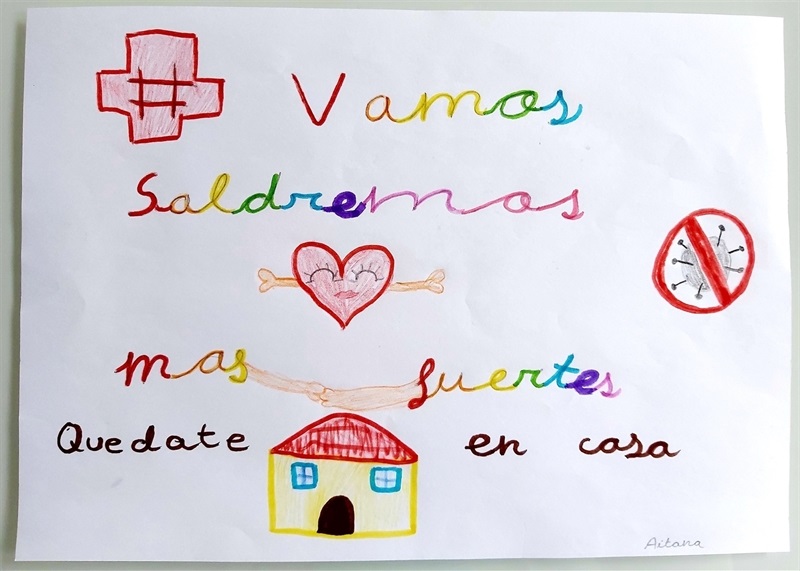 # Vamos
Saldremos
mas fuertes
Quedate en casa
Aitana